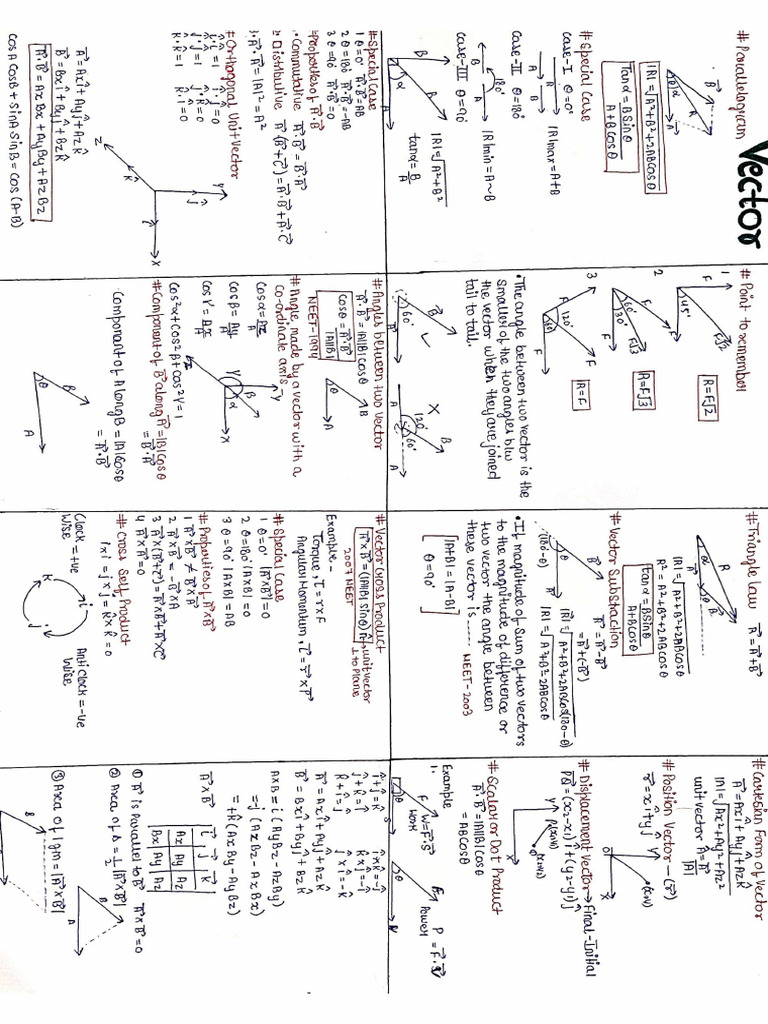 Vector
# Parallelogram
B
R
θ
α
A
|R| = √A²+B²+2ABcosθ
Tanα = B sinθ
A+Bcosθ
# Special case
Case-I θ=0°
A
B
R
|R|max = A+B
Case-II θ=180°
180°
B
A
R
|R|min = A~B
Case-III θ=90°
B
R
α
A
|R| = √A²+B²
tanα = B
A
# Special Case
1 θ=0° A⃗·B⃗ = AB
2 θ=180° A⃗·B⃗ = -AB
3 θ=90° A⃗·B⃗ = 0
# Properties of A⃗·B⃗
1. Commutative A⃗·B⃗ = B⃗·A⃗
2. Distributive A⃗·(B⃗+C⃗) = A⃗·B⃗ + A⃗·C⃗
3. A⃗·A⃗ = |A|² = A²
# Orthogonal Unit Vector
î·î = 1
ĵ·ĵ = 1
k̂·k̂ = 1
î·ĵ = 0
ĵ·k̂ = 0
k̂·î = 0
Y
ĵ
X
î
Z
k̂
A⃗ = Axî + Ayĵ + Azk̂
B⃗ = Bxî + Byĵ + Bzk̂
A⃗·B⃗ = AxBx + AyBy + AzBz
cosA cosB + sinA sinB = cos(A-B)
# Point to remember
1 F
F√2
45°
F
R = F√2
2 F
F
60°
30°
F√3
R = F√3
3 F
F
120°
60°
F
R = F
• The angle between two vector is the
smallest of the two angles b/w
the vector when they are joined
tail to tail.
B
60°
A
✓
X
B
120°
60°
A
# Angles between two vector
A⃗·B⃗ = |A||B| cosθ
cosθ = A⃗·B⃗
|A||B|
NEET-1994
B
θ
A
# Angle made by a vector with a
co-ordinate axis-
cosα = Ax
A
cosβ = Ay
A
cosγ = Az
A
Y
X
Z
α
β
γ
cos²α + cos²β + cos²γ = 1
# Component of B⃗ along A⃗ = |B| cosθ
= B⃗·Â
Component of A along B = |A| cosθ
= A⃗·B̂
B
θ
A
# Triangle law R⃗ = A⃗+B⃗
R
B
α
θ
A
|R| = √A²+B²+2ABcosθ
R² = A²+B²+2ABcosθ
tanα = B sinθ
A+Bcosθ
# Vector Substraction
R⃗ = A⃗-B⃗
= A⃗+(-B⃗)
B⃗
θ
A
(180-θ)
|R| = √A²+B²+2ABcos(180-θ)
|R| = √A²+B²-2ABcosθ
• If magnitude of Sum of two vectors
to the magnitude of difference or
two vector the angle between
these vector is.......
NEET-2003
|A+B| = |A-B|
θ = 90°
# Vector Cross Product
A⃗×B⃗ = (|A||B| sinθ) n̂
unit vector
⊥ to plane
2007 NEET
Example-
Torque, τ = r×F
Angular Momentum, L⃗ = r⃗×P⃗
# Special Case
1 θ=0° (A⃗×B⃗) = 0
2 θ=180° |A×B| = 0
3 θ=90° |A×B| = AB
# Properties of A⃗×B⃗
1 A⃗×B⃗ ≠ B⃗×A⃗
2 A⃗×B⃗ = -B⃗×A⃗
3 A⃗×(B⃗+C⃗) = A⃗×B⃗+A⃗×C⃗
4 A⃗×A⃗ = 0
# Cross Self Product
î×î = ĵ×ĵ = k̂×k̂ = 0
Clock = +ve
Wise
î
ĵ
k̂
Anticlock = -ve
Wise
# Cartesian Form of Vector
A⃗ = Axî + Ayĵ + Azk̂
|A| = √Ax²+Ay²+Az²
unit vector Â = A⃗
|A|
# Position Vector - (r⃗)
r⃗ = xî + yĵ
Y
(x,y)
O
X
# Displacement Vector → Final-Initial
PQ⃗ = (x₂-x₁)î + (y₂-y₁)ĵ
Y
X
# Scalar or Dot Product
A⃗·B⃗ = |A||B| cosθ
= AB cosθ
Example
1. F
W = F⃗·S⃗
θ
S
Work
F
P = F⃗·V⃗
θ
V
Power
î×ĵ = k̂
ĵ×k̂ = î
k̂×î = ĵ
î×k̂ = -ĵ
k̂×ĵ = -î
ĵ×î = -k̂
A⃗ = Axî + Ayĵ + Azk̂
B⃗ = Bxî + Byĵ + Bzk̂
A×B = i (AyBz - AzBy)
-j (AxBz - AzBx)
+k (AxBy - AyBx)
A⃗×B⃗
i⃗ j⃗ k⃗
Ax Ay Az
Bx By Bz
① A⃗ is Parallel to B⃗ A⃗×B⃗ = 0
② Area of Δ = 1/2 |A⃗×B⃗|
B
A
③ Area of ||gm = |A⃗×B⃗|
B